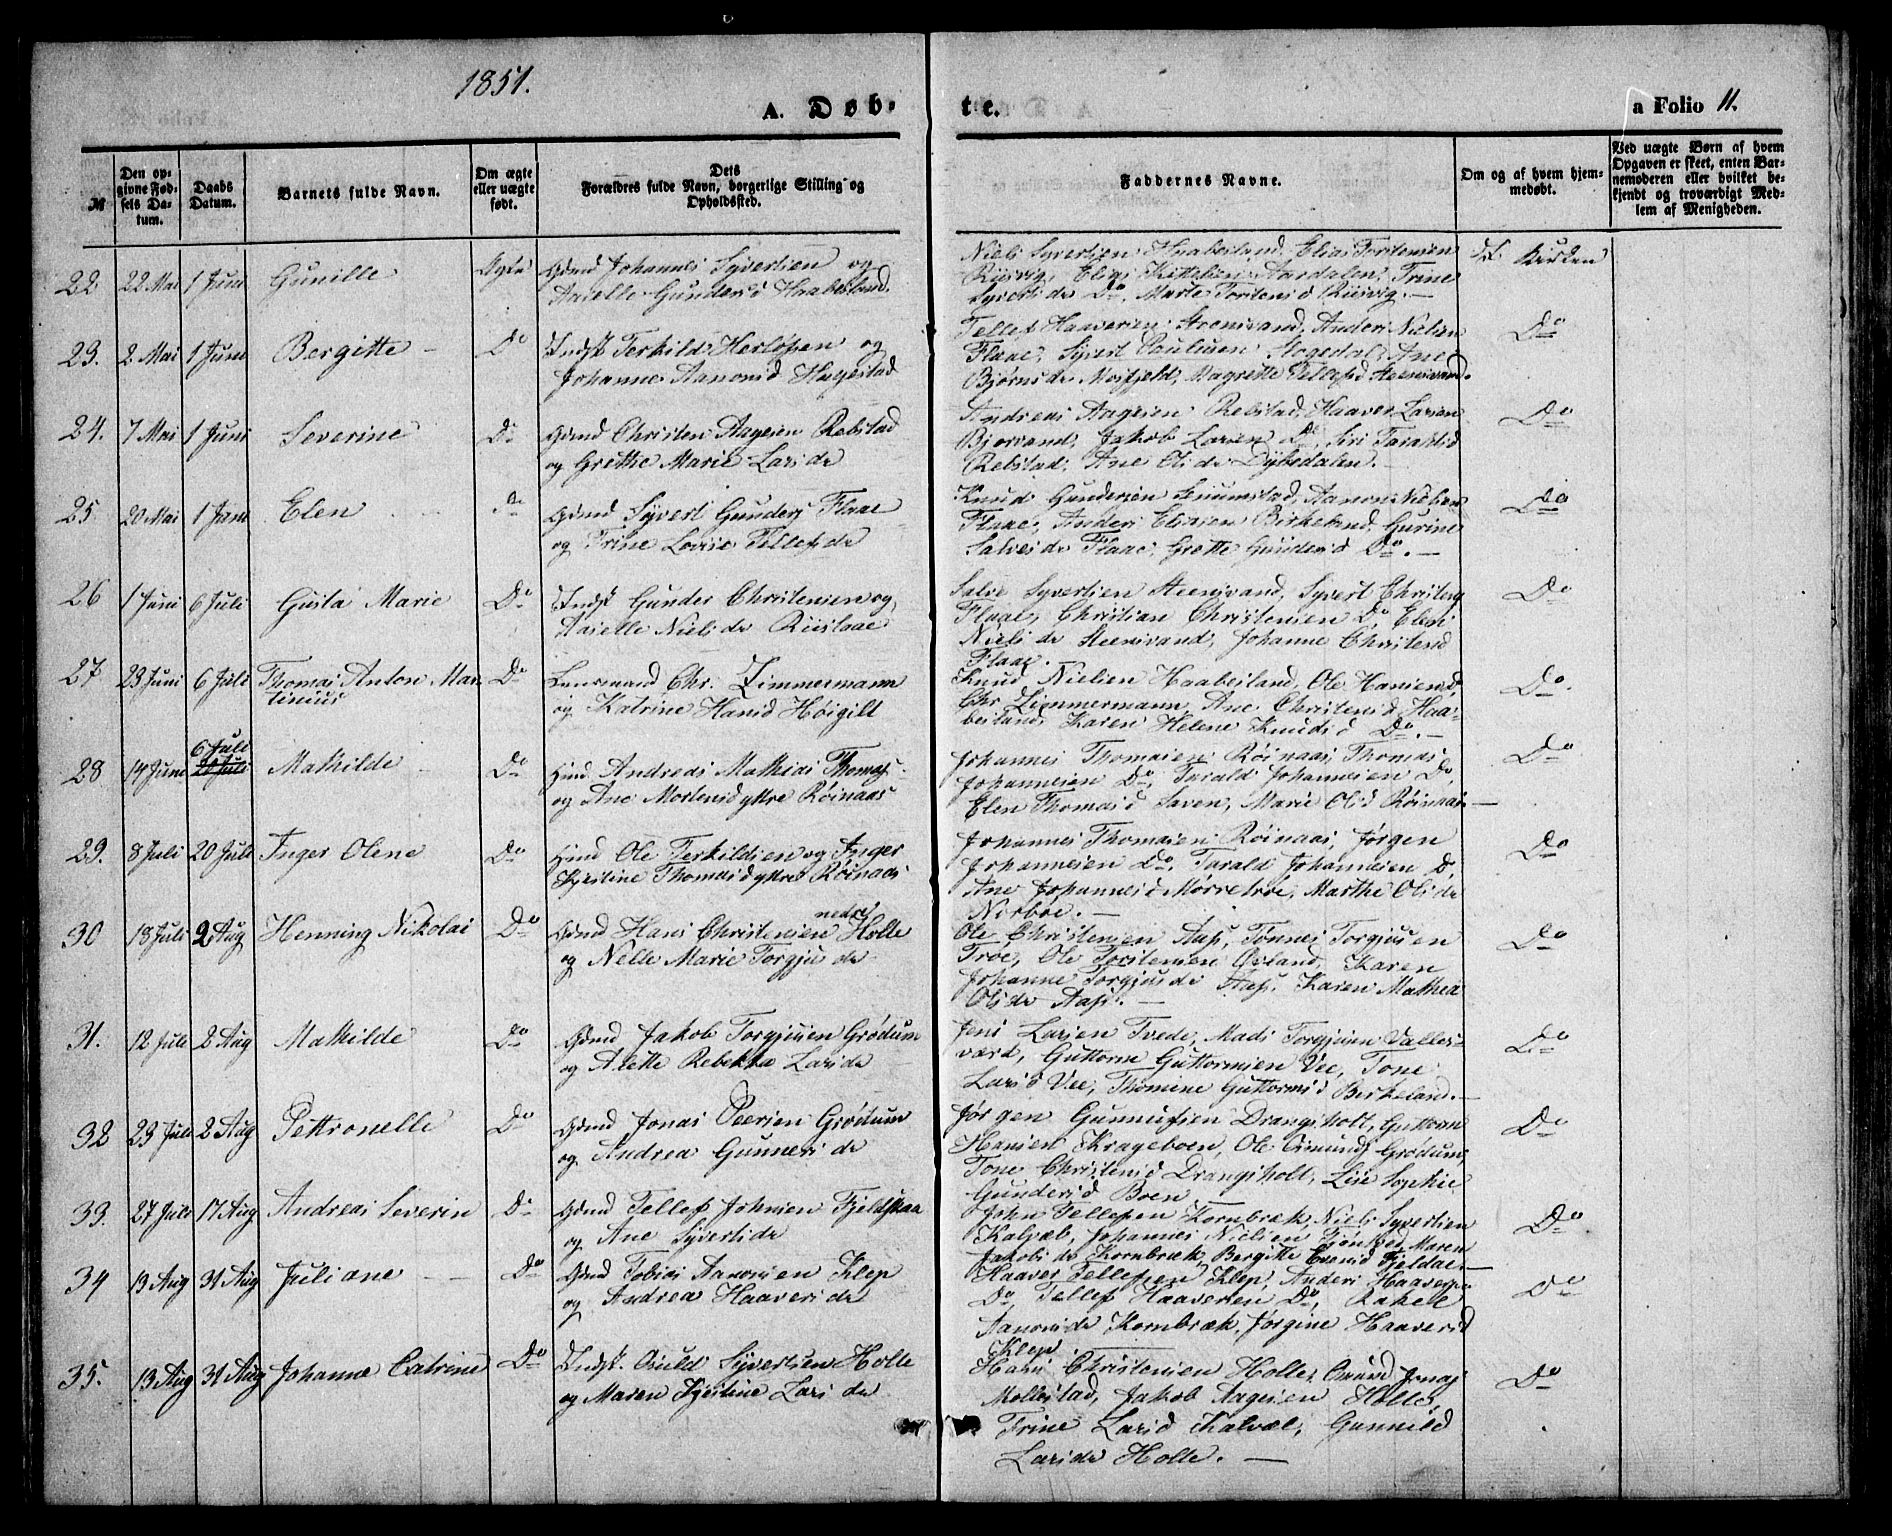 1851.
A. Døb-
te.
a Folio 11.
№
Den op-
givne Fød-
sels Da-
tum.
Daabs
Datum.
Barnets fulde Navn.
Om ægte
eller uægte
født.
Dets
Forældres fulde Navn, borgerlige Stilling og
Opholdssted.
Faddernes Navne.
Om og af hvem hjem-
medøbt.
Ved uægte Børn af hvem
Opgaven er skeet, enten Bar-
nemoderen eller hvilket be-
kjendt og troværdigt Med-
lem af Menigheden.
22 22 Mai 1 Juni Gunille Ægte Gdmd Johannes Syvertsen og
Aaselle Gundersd Haabesland.
Niels Syvertsen Haabesland, Elias Torstensen
Riisvig, Elias Kittelsen Dardalen, Trine
Syvertsdr Do, Marte Torstensd Riisvig.—
Kirken
23. 2 Mai 1 Juni Bergitte — Do Indst Terkild Herlofsen og
Johanne Aanonsd Hagestad
Tellef Haaversen Steensvand, Anders Nielsen
Flaae, Syvert Poulusen Stogedal, Ane
Bjørnsdr Mosfjeld, Magrette Tellefsd Steensvand.
Do
24. 7 Mai 1 Juni Severine Do Gdmd Christen Aagesen Rebstad
og Grethe Marie Larsdr
Andreas Aagesen Rebstad, Haaver Larsen
Bjorvand, Jakob Larsen Do, Siri Taraldsd
Rebstad, Ane Olsdr Dybedalen.—
Do
25 20 Mai 1 Juni Elen Do Gdmd Syvert Gunders Flaae
og Trine Lovise Tellefsdr
Knud Gundersen Senumstad, Aanon Nielsen
Flaae, Anders Elivsen Birkeland, Gurine
Salvesdr Flaae, Grette Gundersd Do.—
Do
26 1 Juni 6 Juli Gusta Marie Do Indst Gunder Christensen og
Aaselle Nielsdr Riislaae
Salve Syvertsen Steensvand, Syvert Christens
Flaae, Christian Christensen Do, Elen
Nielsdr Steensvand, Johanne Christensd
Flaae.
Do
27 23 Juni 6 Juli Thomas Anton Mar-
tinius
Do Lensmand Chr. Zimmermann
og Katrine Hansd Høigilt
Knud Nielsen Haabesland, Ole Hansen Do,
Chr Zimmermann, Ane Christensd Haa-
besland, Karen Helene Knudsd Do.—
Do.
28 14 Juni 6 Juli
20 Juli Mathilde Do Hmd Andreas Mathias Thomas
og Ane Mortensd yttre Röinaas
Johannes Thomasen Röinaas, Thomas
Johannesen Do, Tarald Johannesen Do,
Elen Thomasd Saven, Marie Olsd Röinaas—
Do
29. 8 Juli 20 Juli Inger Olene Do Hmd Ole Terkildsen og Inger
Kjestine Thomasd yttre Röinaas
Johannes Thomasen Röinaas, Jørgen
Johannesen Do, Tarald Johannesen Do,
Ane Johannesd Mørretroe, Marthe Olsdr
Norboe.—
Do
30 18 Juli 2 Aug Henning Nikolai Do Gdmd Hans Christensen nedre Holle
og Nelle Marie Torgjusdr
Ole Christensen Aas, Tønnes Torgjusen
Troe, Ole Torstensen Ovland, Karen
Johanne Torgjusdr Aas, Karen Mathea
Olsdr Aas.—
Do
31. 12 Juli 2 Aug Mathilde Do Gdmd Jakob Torgjusen Grødum
og Alette Rebekka Larsdr
Jens Larsen Tvede, Mads Torgjusen Valles-
værd, Guttorm Guttormsen Vee, Tone
Larsd Vee, Thomine Guttormsd Berkeland.—
Do
32 23 Juli 2 Aug Pettronelle Do Gdmd Jonas Peersen Grødum
og Andrea Gunnersdr
Jørgen Gunnufsen Drangsholt, Guttorm
Hansen Krageboen, Ole Osmunds Grødum,
Tone Christensd Drangsholt, Lise Sophie
Gundersd Boen
Do
33. 27 Juli 17 Aug Andreas Severin Do Gdmd Tellef Johnsen Fjeldskaa
og Ane Syvertsdr
John Tellefsen Kornbræk, Niels Syvertsen
Kalvæb, Johannes Nielsen Tjønstøl, Maren
Jakobsdr Kornbræk, Bergitte Evensd Fjeldae—
Do
34 13 Aug 31 Aug Juliane — Do Gdmd Tobias Aanonsen Klep
og Andrea Haaversdr
Haaver Tellefsen Klep, Anders Haaversen
Do, Tellef Haaversen Do, Rakel
Aanonsdr Kornbræk, Jørgine Haaversd
Klep.
Do
35. 13 Aug 31 Aug Johanne Catrine Do Indst. Osuld Syvertsen Holle
og Maren Kjestine Larsdr
Hans Christensen Holle, Omund Jonas
Mollestad, Jakob Aagesen Holle,
Trine Larsd Kalvæl, Gunnild
Larsdr Holle.—
Do